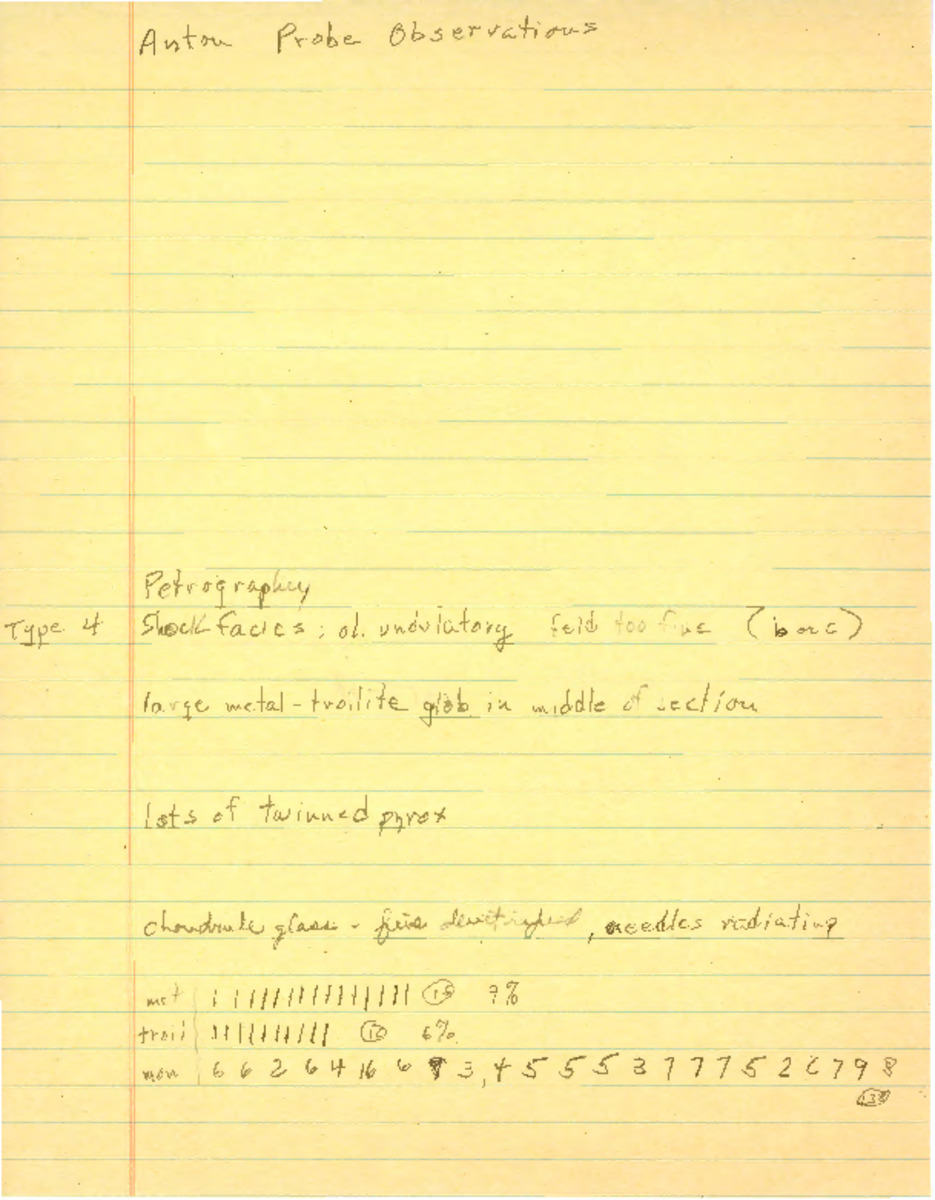 Anton Probe Observations
Petrography
Type 4 Shock facies: ol. undulatory feld too fine (b or c)
large metal-troilite glob in middle of section
lots of twinned pyrox
chondrule glass - fine devitrified, needles radiating
met | | | | | | | | | | | | | | | | 15 9%
troil | | | | | | | | | | 10 6%
6 6 2 6 4 16 6 3, 4 5 5 5 3 7 7 7 5 2 6 7 9 8